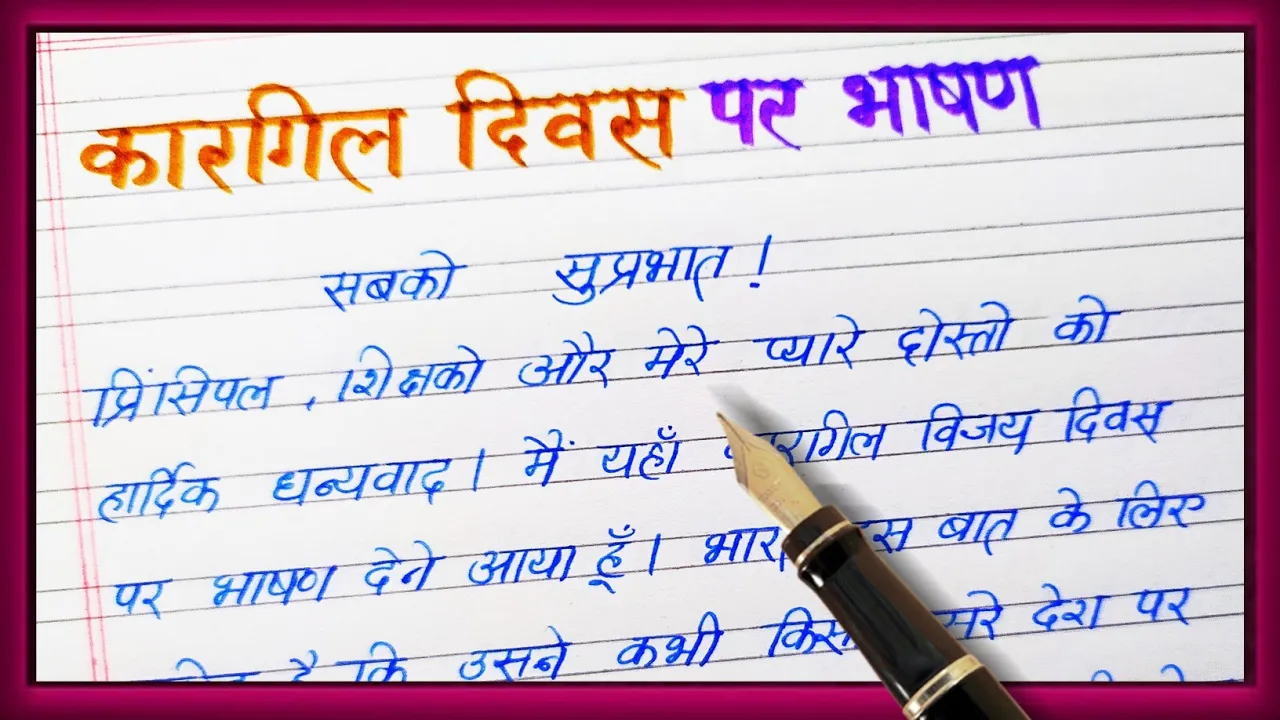 कारगिल दिवस पर भाषण
सबको सुप्रभात!
प्रिंसिपल, शिक्षको और मेरे प्यारे दोस्तो को
हार्दिक धन्यवाद। मैं यहाँ कारगिल विजय दिवस
पर भाषण देने आया हूँ। बात के लिए
है कि उसने कभी देश पर